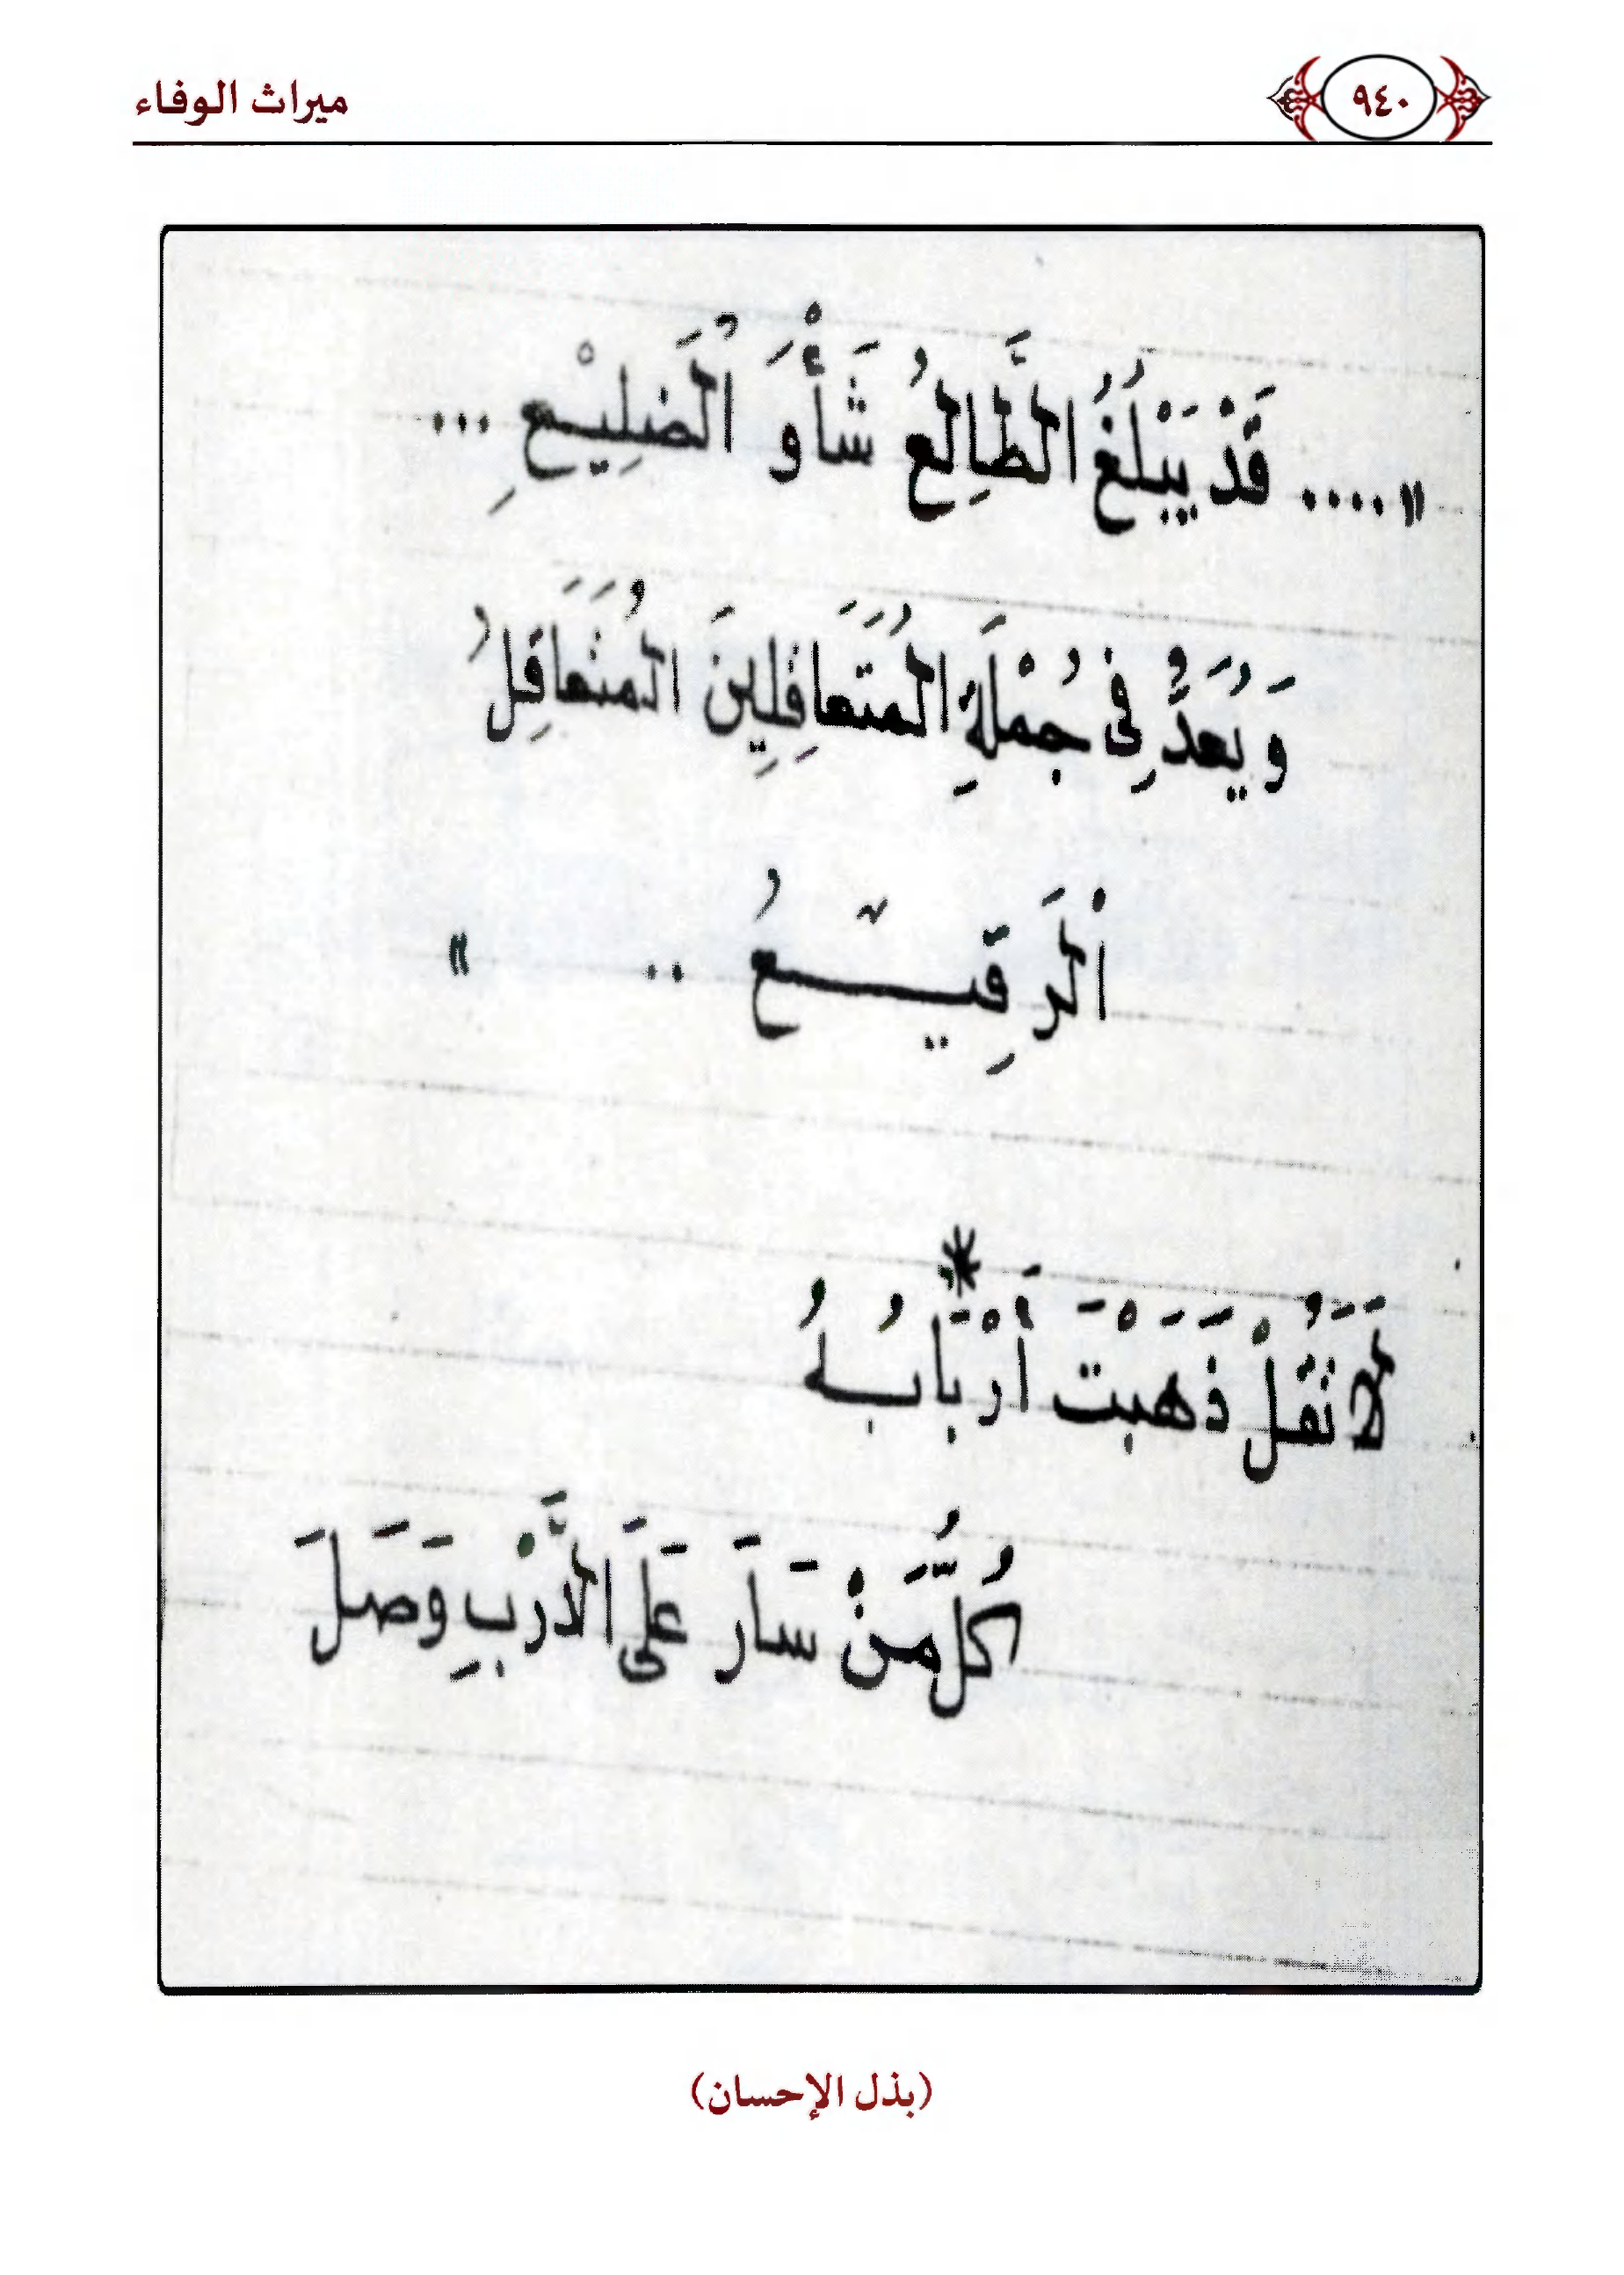 ميراث الوفاء
٩٤٠
«.... قَدْ يَبْلُغُ الظَّالِعُ شَأْوَ الْضَلِيْعِ ...
وَيُعَدُّ فِي جُمْلَةِ الْمُتَعَاقِلِينَ الْمُتَعَاقِلُ
اْلَرقِيـــعُ .. »
*
لَا تَقُلْ ذَهَبَتْ أَرْبَابُهُ
كُلُّ مَنْ سَارَ عَلَى الدَّرْبِ وَصَلَ
(بذل الإحسان)